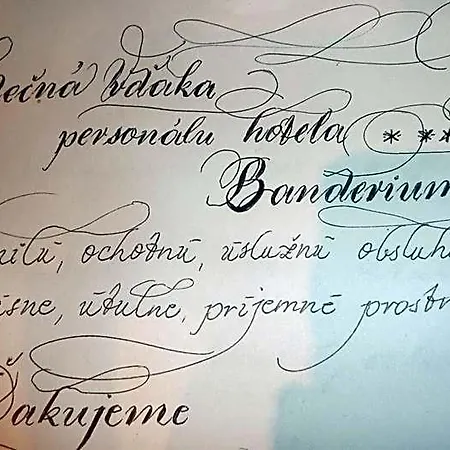 ečná vďaka
personálu hotela ***
Banderium
milú, ochotnú, úslužnú obsluhu
ásne, útulné, príjemné prostr
Ďakujeme